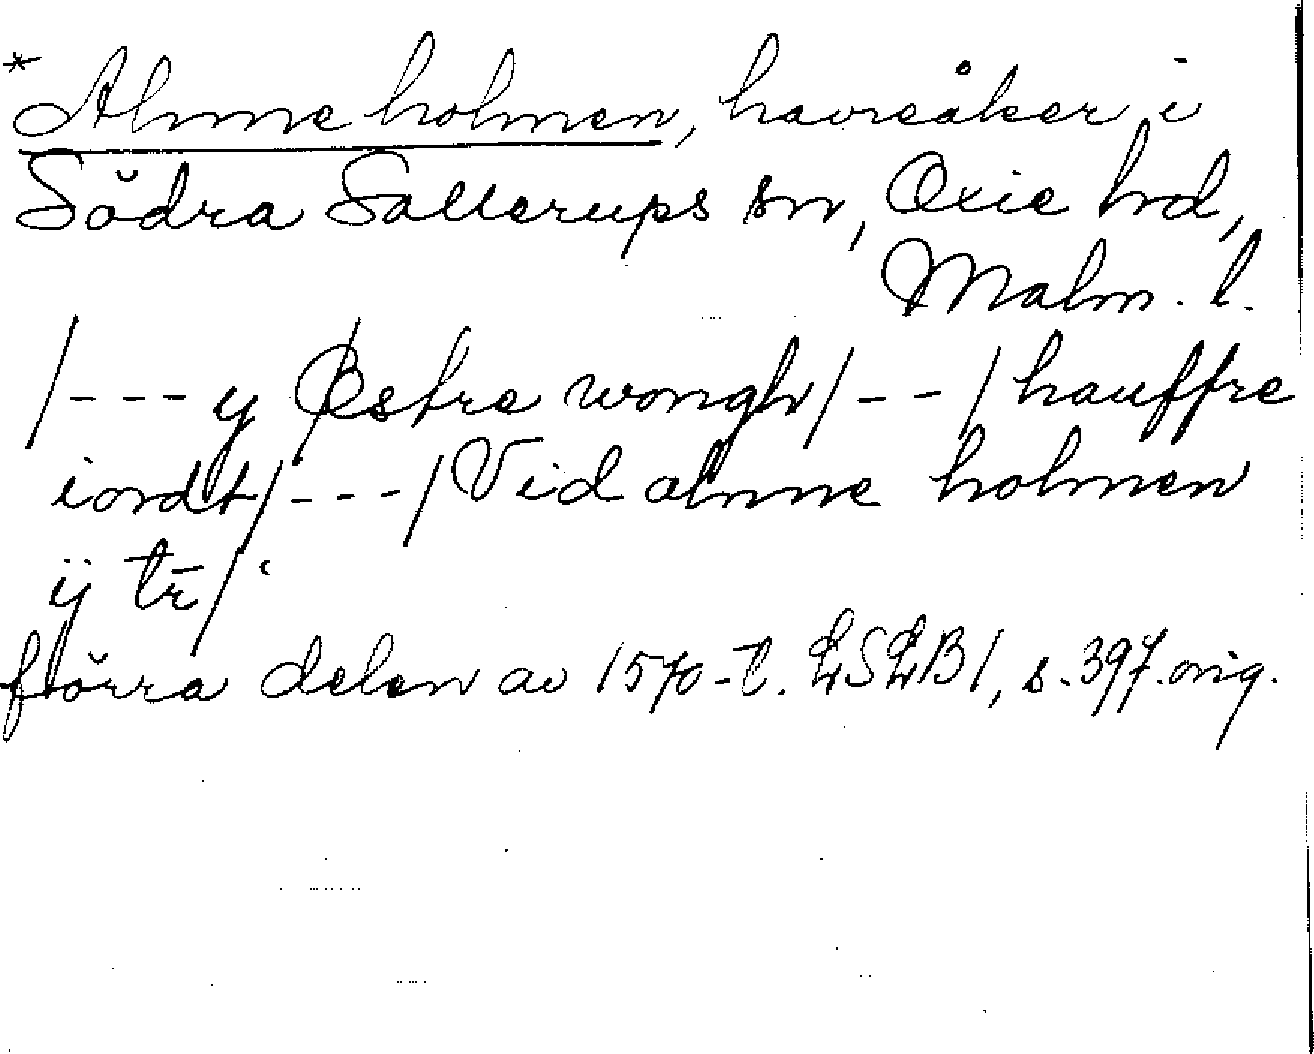 * Almne holmen, havreåker i
Södra Sallerups sn, Oxie hd,
Malm. l.
/---y Østre wongh/--/hauffre
iordt/---/Vid almne holmen
ÿ tr̄/
förra delen av 1570-t. LSLB1, s. 397. orig.